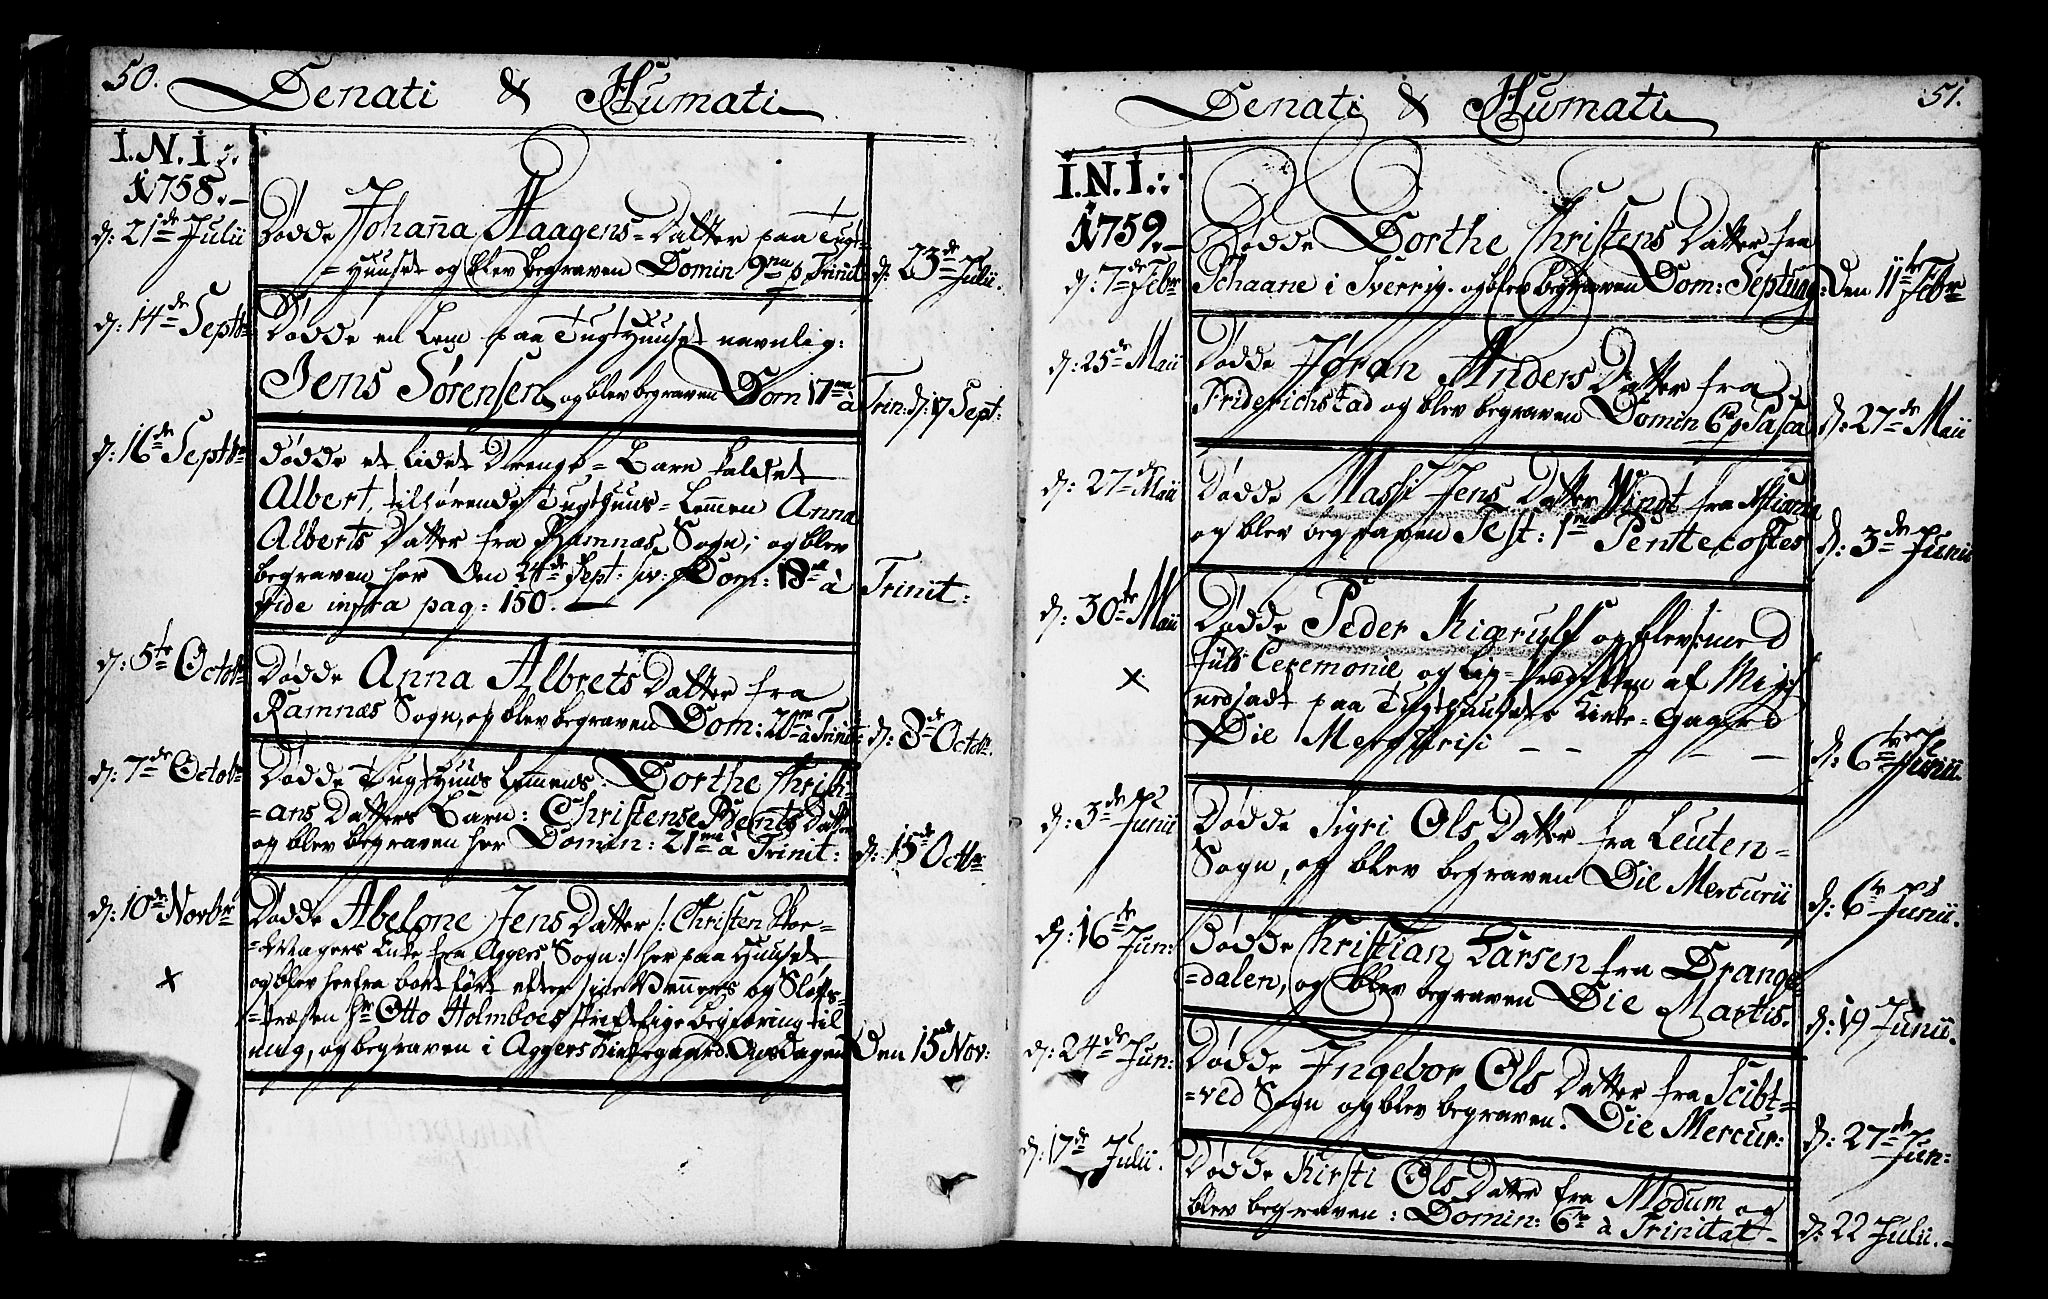 50.
Denati & Humati
I.N.I.:.
1758.
d: 21de Julii
Døde Johanna Haagens-Datter paa Tugt-
=Huuset og blev begraven Domin 9na p Trinit:
d: 23de Julii.
d: 14de Septbr
Døde en Lem paa Tugthuuset navnlig:
Jens Sørensen, og blev begraven Dom 17ma à Trin: d: 17 Sept:
d: 16de Septbr
Døde et lidet Drenge-Barn kaldet
Albert, tilhørende Tugthuus-Lemmen Anna
Alberts Datter fra Ramnæs Sogn; og blev
begraven her Den 24de Sept: siv: Dom: 18na à Trinit:
vide infra pag: 150.
d: 5te Octobr
Døde Anna Albrets Datter fra
Ramnæs Sogn, og blev begraven Dom: 20ma à Trinit:
d: 8de Octbr.
d: 7de Octobr
Døde Tugthuus Lemmens: Dorthe Christi-
=ans Datters Barn: Christense Bents Datter
og blev begraven her Domin: 21ma à Trinit:
d: 15de Octbr
d: 10de Novbr
Døde Abelone Jens Datter /: Christen Skor-
Enke fra Aggers Sogn :/ her paa Huuset,
og blev herfra bort ført efter sine Venners og Slots-
=Præsten Hr Otto Holmboes skriftlige begiæring til
mig, og begraven i Aggers Kirkegaard Onsdagen
Den 15de Nov:
51.
Denati & Humati
I.N.I.:.
1759.
d: 7de Febr
Døde Dorthe Christens Datter fra
Schaane i Sverrig. og blev begraven Dom: Septuag:
Den 11te Febr
d: 25de Maii
Døde Jøran Anders Datter fra
Friderichstad og blev begraven Domin 6ta p Pasca
d: 27de Maii
d: 27de Maii
Døde Massi Jens Datter Windt fra
og blev begraven Fest: 1ma Penttecostes
d: 3de Junii
d: 30te Maii
Døde Peder Kierulf og blev med
fuld Ceremonie og Lig-Prædikken af Mig
nedsadt paa Tugthuusets Kirke-Gaard
Die Mercurii
d: 6te Junii.
d: 3de Junii
Døde Sigri Ols Datter fra Leuten-
Sogn, og blev begraven Die Mercurii
d: 6te Junii.
d: 16te Jun:
Døde Christian Larsen fra Drange-
=dalen, og blev begraven Die Martis.
d: 19 Junii.
d: 24de Jun:
Døde Ingebor Ols Datter fra Scibt-
=ved Sogn og blev begraven. Die Mercur:
d: 27de Jun:
d: 17de Julii.
Døde Kirsti Ols Datter fra Modum og
blev begraven: Domin: 6ta à Trinitat
d: 22 Julii.